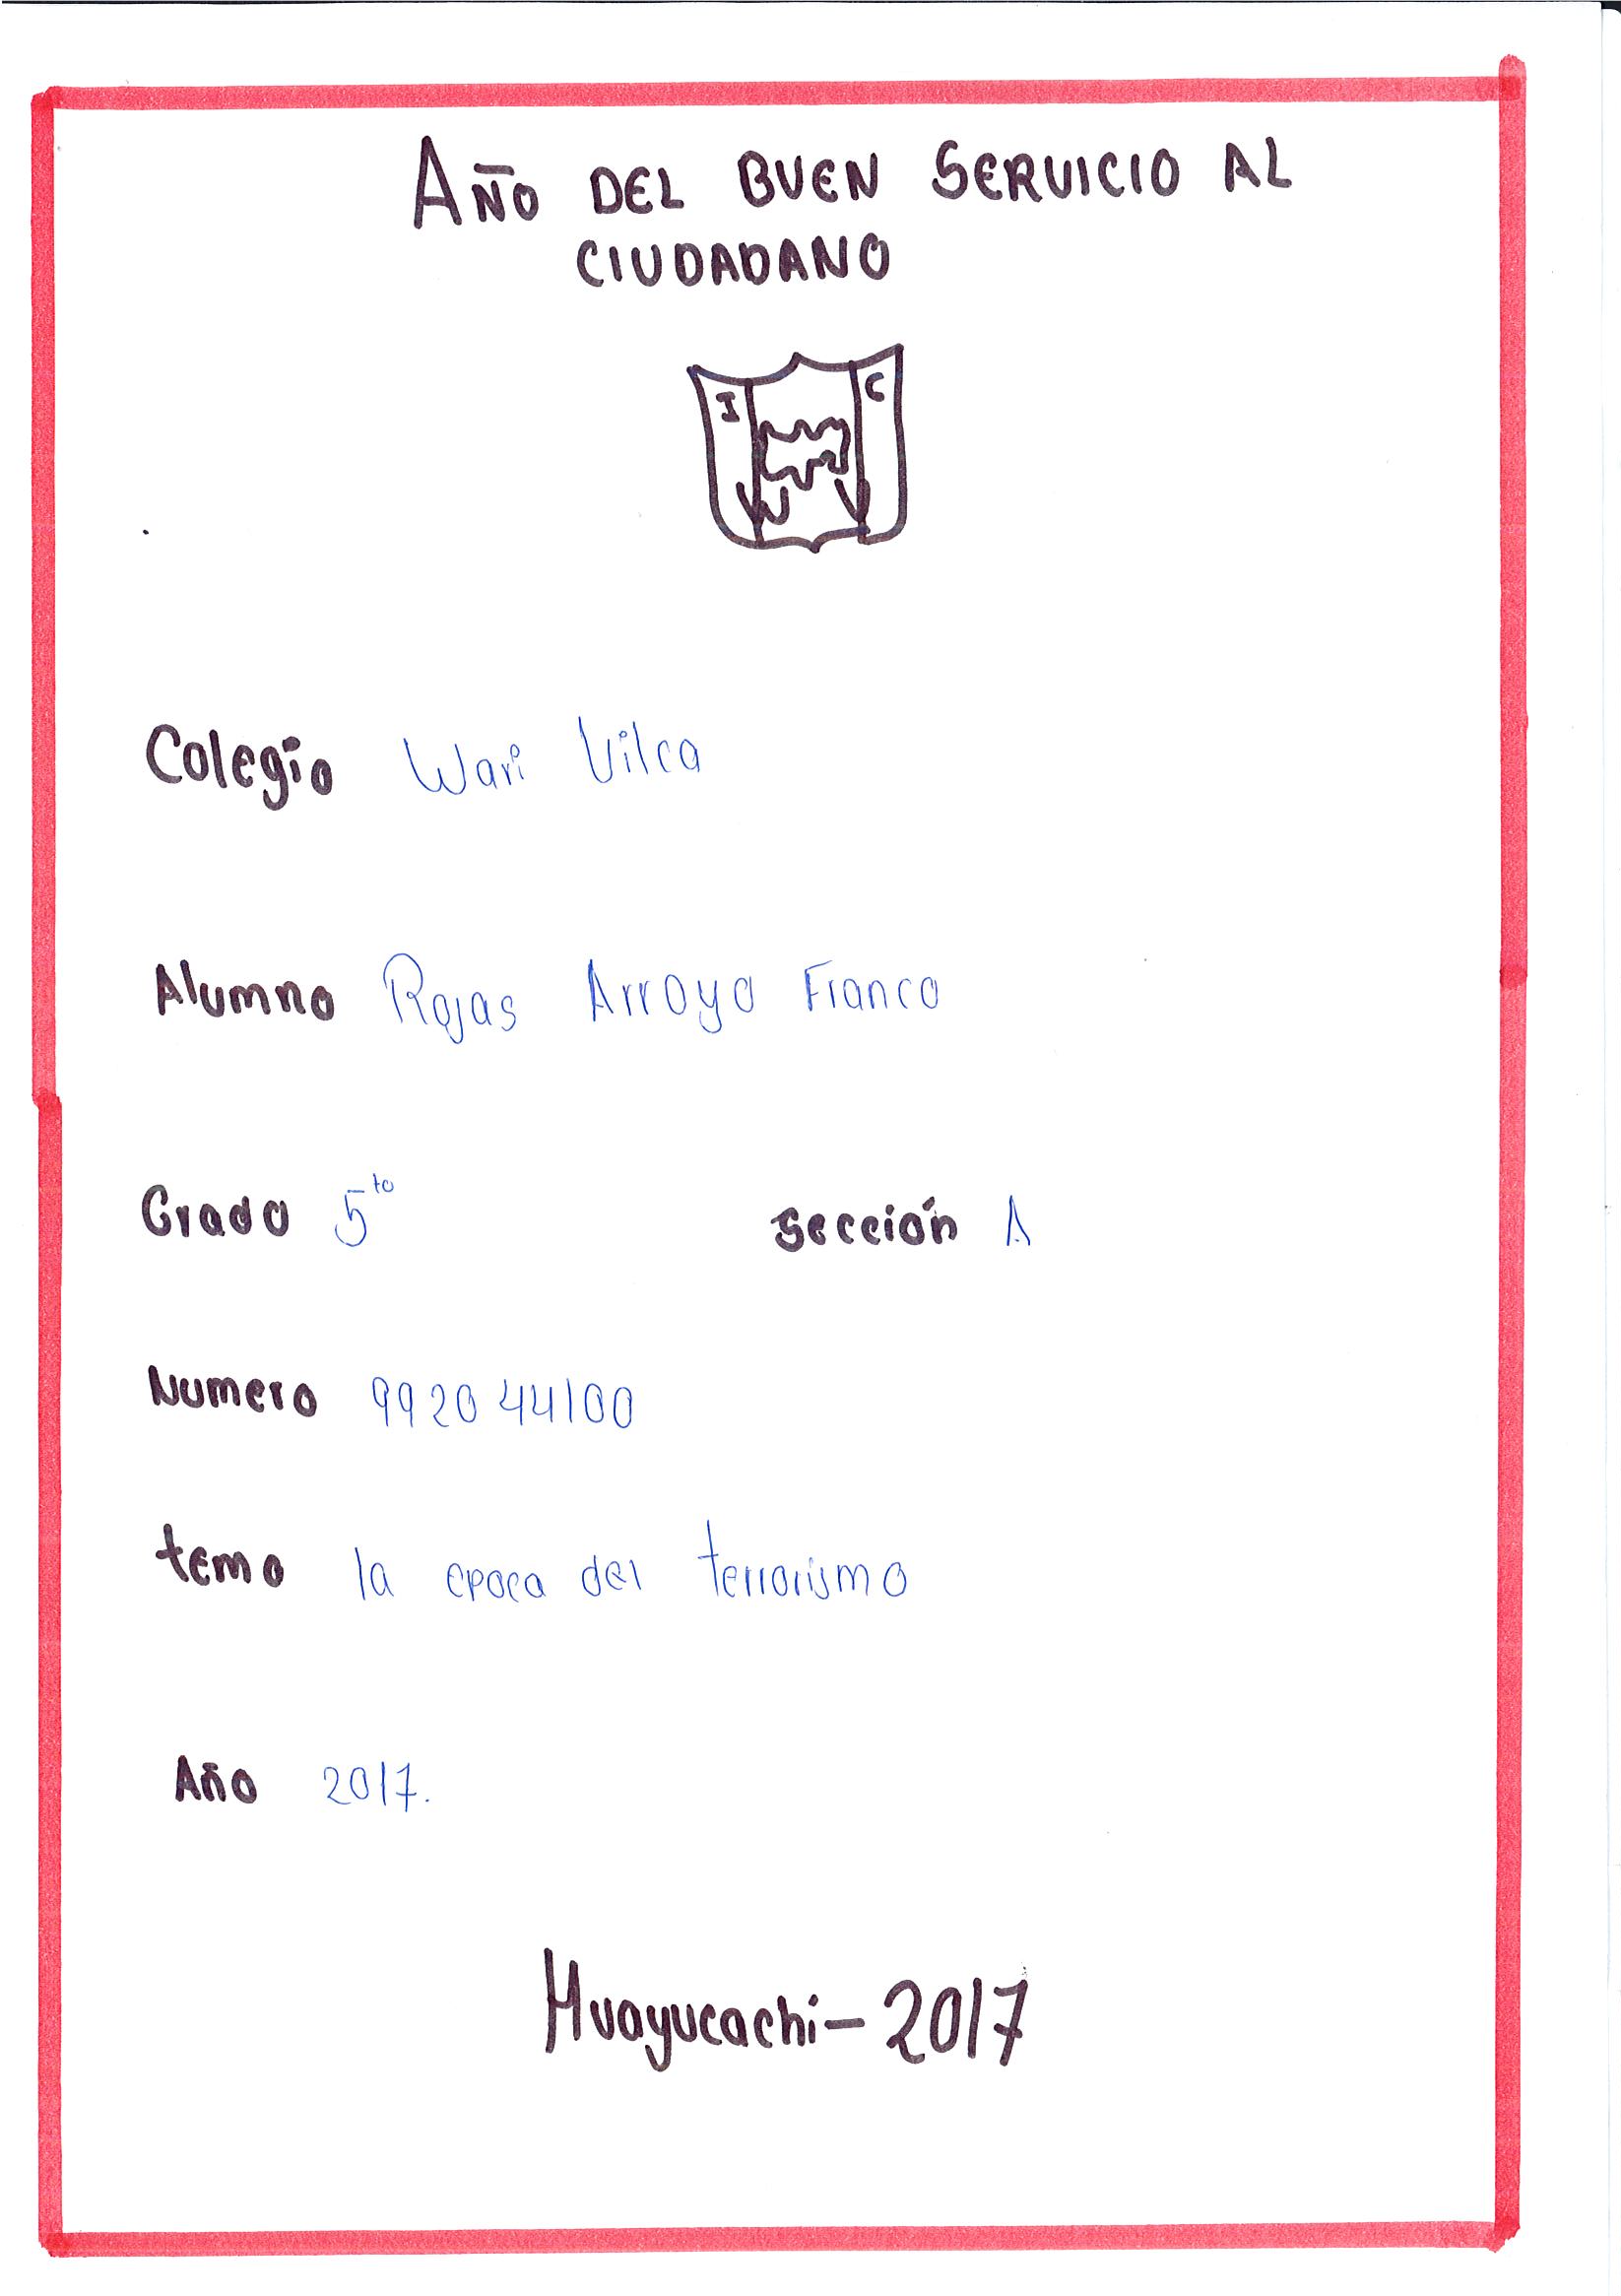 AÑO DEL BUEN SERVICIO AL
CIUDADANO
I C
W V
Colegio Wari Vilca
Alumno Rojas Arroyo Franco
Grado 5to sección A
Numero 992044100
tema la epoca del terrorismo
Año 2017.
Huayucachi-2017